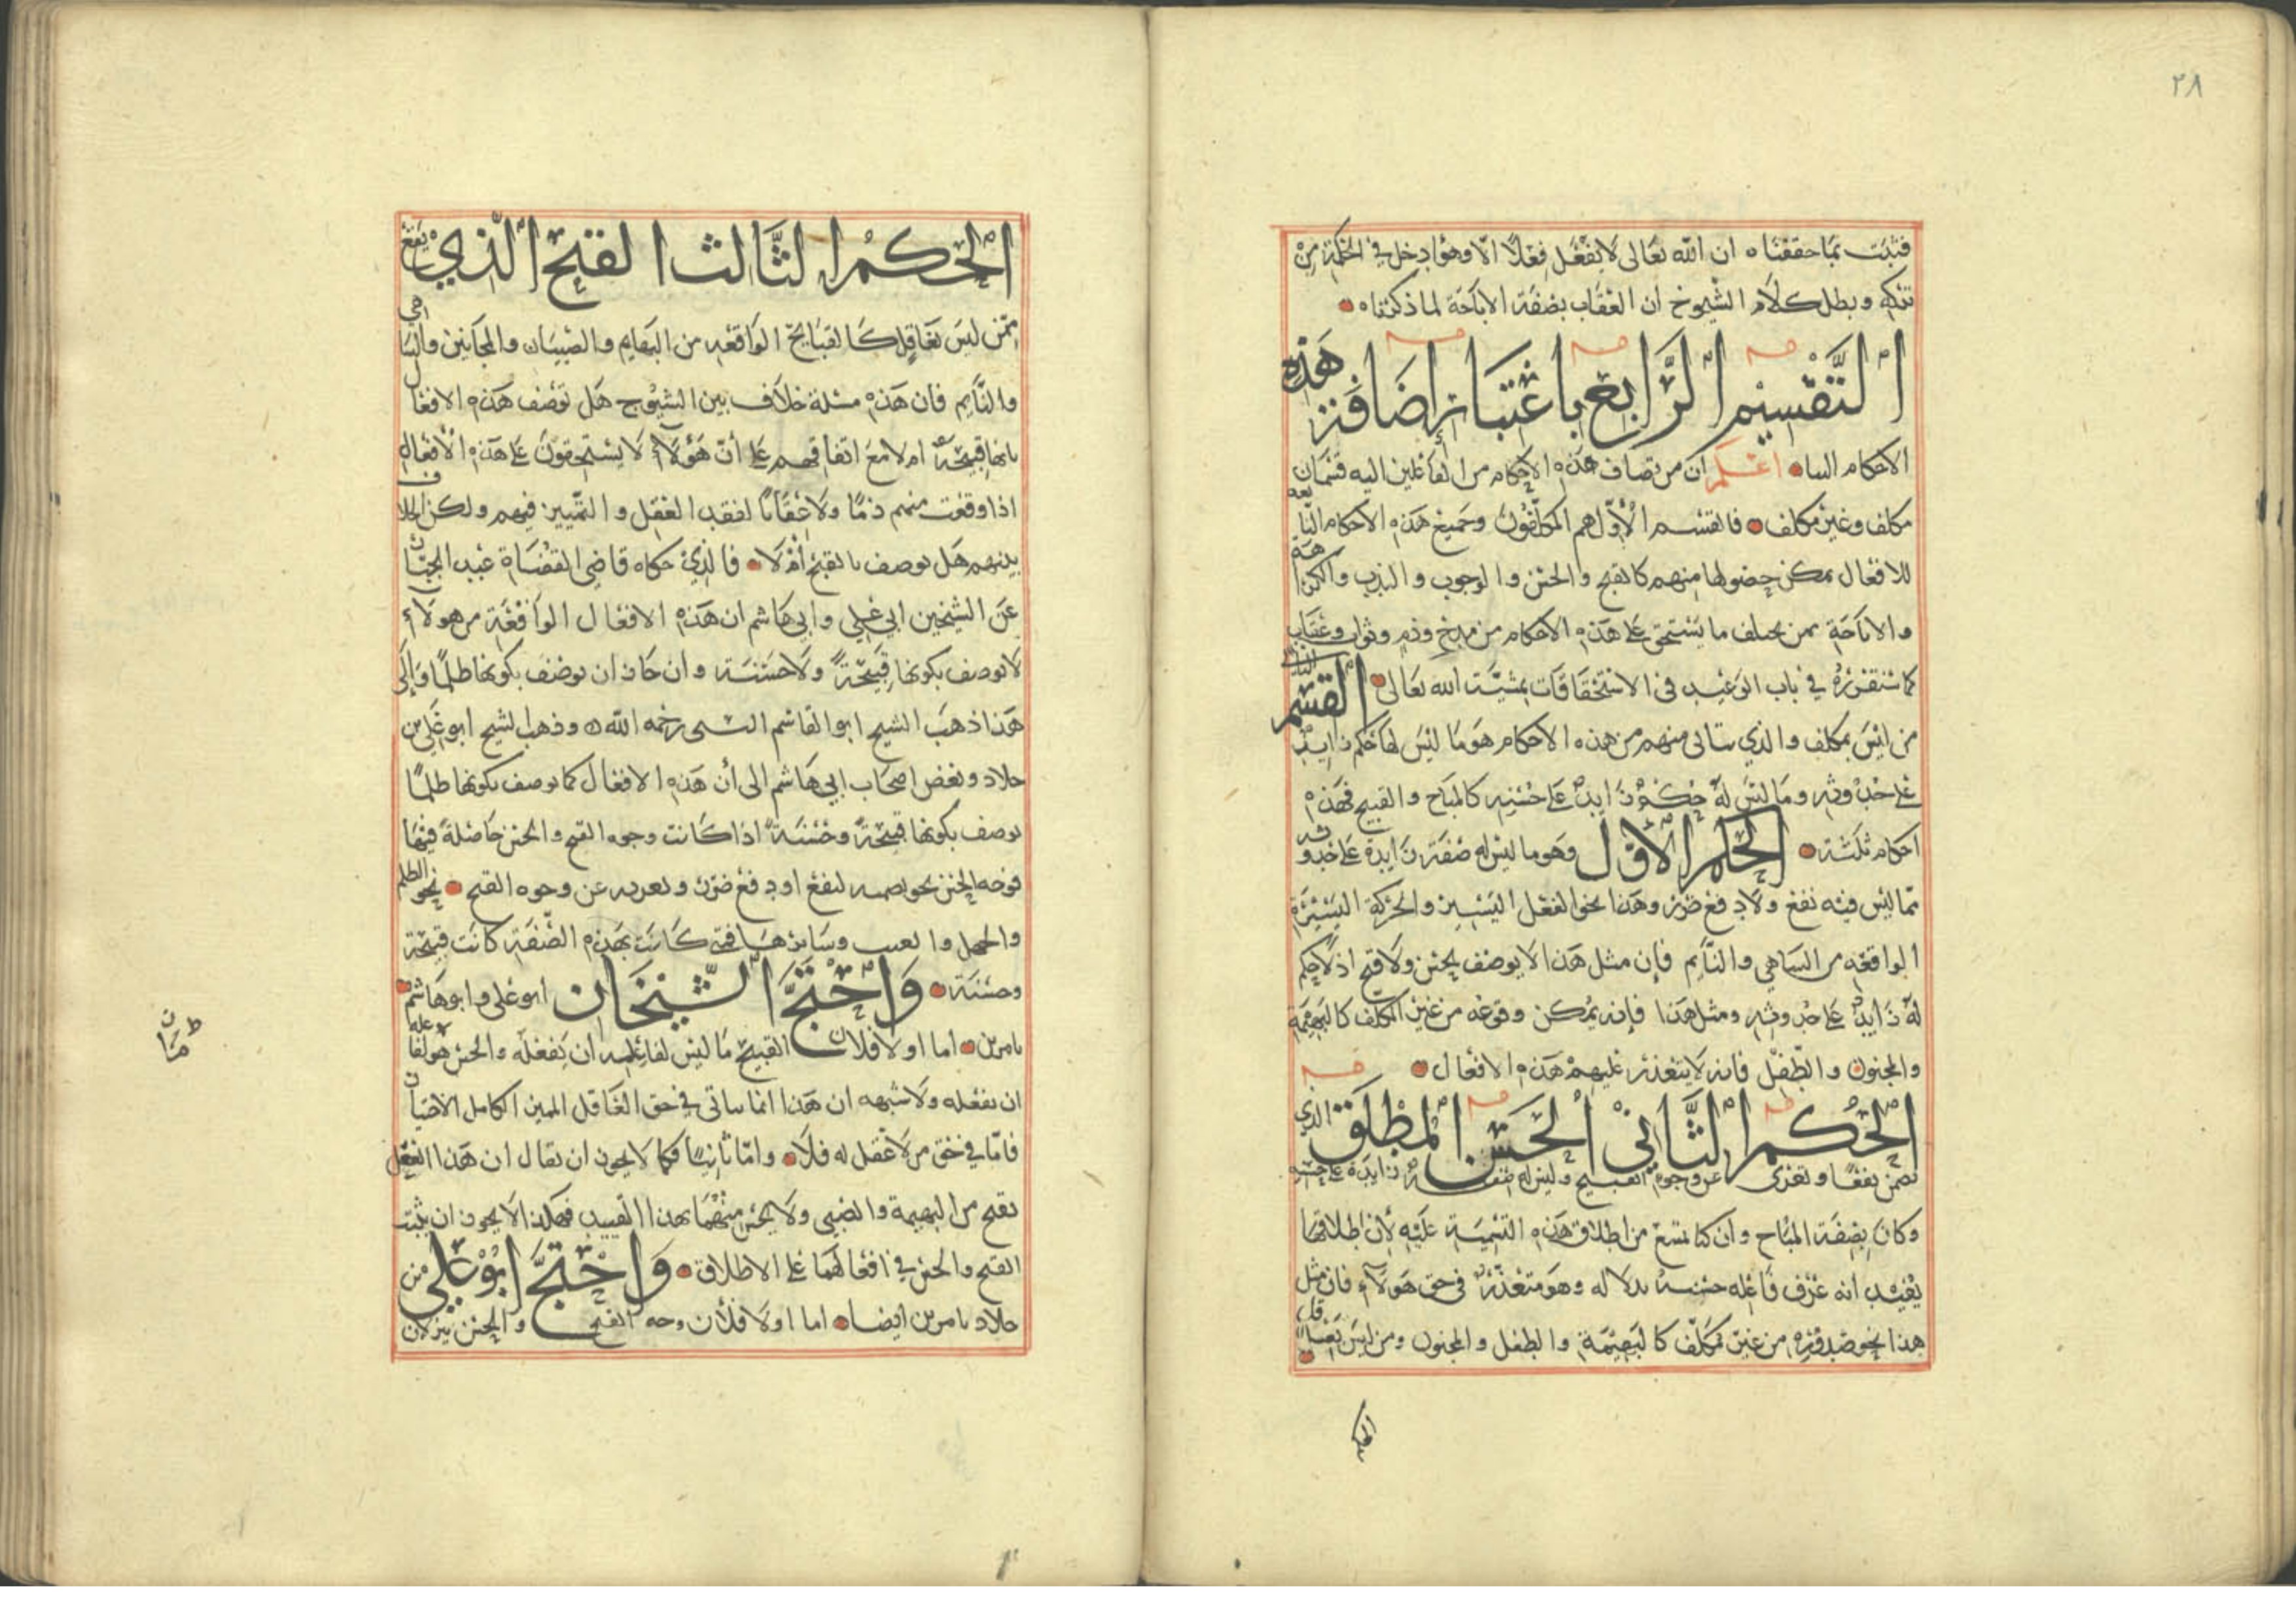 ٢٨
فثبت بما حققناه ان الله تعالى لا يفعل فعلًا الّا وهو ادخل في الحكمة من
تركه وبطل كلام الشيوخ ان العقاب بصفة الاباحة لما ذكرناه
التقسيم الرابع باعتبار اضافة هذه
الاحكام الينا اعلم ان من تضاف هذه الاحكام من الفاعلين اليه قسمان
مكلف وغير مكلف فالقسم الأوّل هم المكلّفون وجميع هذه الاحكام التابعه
للافعال يمكن حصولها منهم كالقبح والحسن والوجوب والندب والكراهة
والاباحة ممن يختلف ما يستحق على هذه الاحكام من مدح وذم وثواب وعقاب
كما سنقرره في باب الوعيد في الاستحقاقات بمشيّة الله تعالى القسم الثاني
من ليس بمكلف والذي يتاتى منهم من هذه الاحكام هو ما ليس لها حكم زايد
على حدوثه وما ليس له حكم زايد على حسنه كالمباح والقبيح فهذه
احكام ثلثة الحكم الاول وهو ما ليس له صفة زايدة على حدوثه
مما ليس فيه نفع ولا دفع ضرر وهذا نحو الفعل اليسير والحركة اليسيرة
الواقعه من الساهي والنايم فإن مثل هذا لا يوصف بحسن ولا قبح اذ لا حكم
له زايد على حدوثه ومثل هذا فإنه يمكن وقوعه من غير المكلف كالبهيمة
والمجنون والطّفل فانه لا يتعذر عليهم هذه الافعال
الحكم الثاني الحسن المطلق الذي
تضمن نفعًا وتعرى عن وجوه القبيح وليس له صفة زايدة على حسنه
وكان بصفة المباح وان كنا نمتنع من اطلاق هذه التسمية عليه لأن اطلاقها
يفيد انه عرف فاعله حسنه بدلاله وهو متعذر في حق هولاء فان مثل
هذا نحو صدوره من غير مكلّف كالبهيمة والطفل والمجنون ومن ليس بعاقل
الحكم
الحكم الثالث القبح الذي يقع
ممّن ليس بعاقل كالقبايح الواقعه من البهايم والصبيان والمجانين والساهي
والنّايم فان هذه مسئلة خلاف بين الشيوخ هل توصف هذه الافعال
بانها قبيحة ام لا مع اتفاقهم على أنّ هؤلاء لا يستحقون على هذه الأفعال
اذا وقعت منهم ذمًا ولا عقابًا لفقد العقل والتمييز فيهم ولكن الخلاف
بينهم هل توصف بالقبح أم لا فالذي حكاه قاضي القضاة عبد الجبّار
عن الشيخين ابي علي وابي هاشم ان هذه الافعال الواقعة من هولاء
لا توصف بكونها قبيحةً ولا حسنة وان جاز ان توصف بكونها ظلمًا وإلى
هذا ذهب الشيخ ابو القاسم رحمه الله وذهب الشيخ ابو علي بن
خلاد وبعض اصحاب ابي هاشم الى أن هذه الافعال كما توصف بكونها ظلمًا
توصف بكونها قبيحةً وحسنةً اذا كانت وجوه القبح والحسن حاصلةً فيها
فوجه الحسن نحو تضمنه لنفع او دفع ضرر وتعريه عن وجوه القبح نحو الظلم
والجهل والعبث وسايرها فمتى كانت بهذه الصّفة كانت قبيحة
وحسنة واحتجّ الشيخان ابو علي وابو هاشم
بامرين اما اولا فلان القبيح ما ليس لفاعله ان يفعله والحسن هو لفاعله
ان يفعله ولا شبهه ان هذا انما يتاتى في حق العاقل المميز الكامل
فامّا في حق من لا عقل له فلا وامّا ثانيًا فكما لا يجوز ان يقال ان هذا الفعل
يقبح من البهيمة والصبي ولا يحسن منهما بهذا القييد فهكذا لا يجوز ان يثبت
القبح والحسن في افعالهما على الاطلاق واحتجّ ابو علي من
خلاد بامرين ايضا اما اولا فلأن وجه القبح والحسن ينزلان